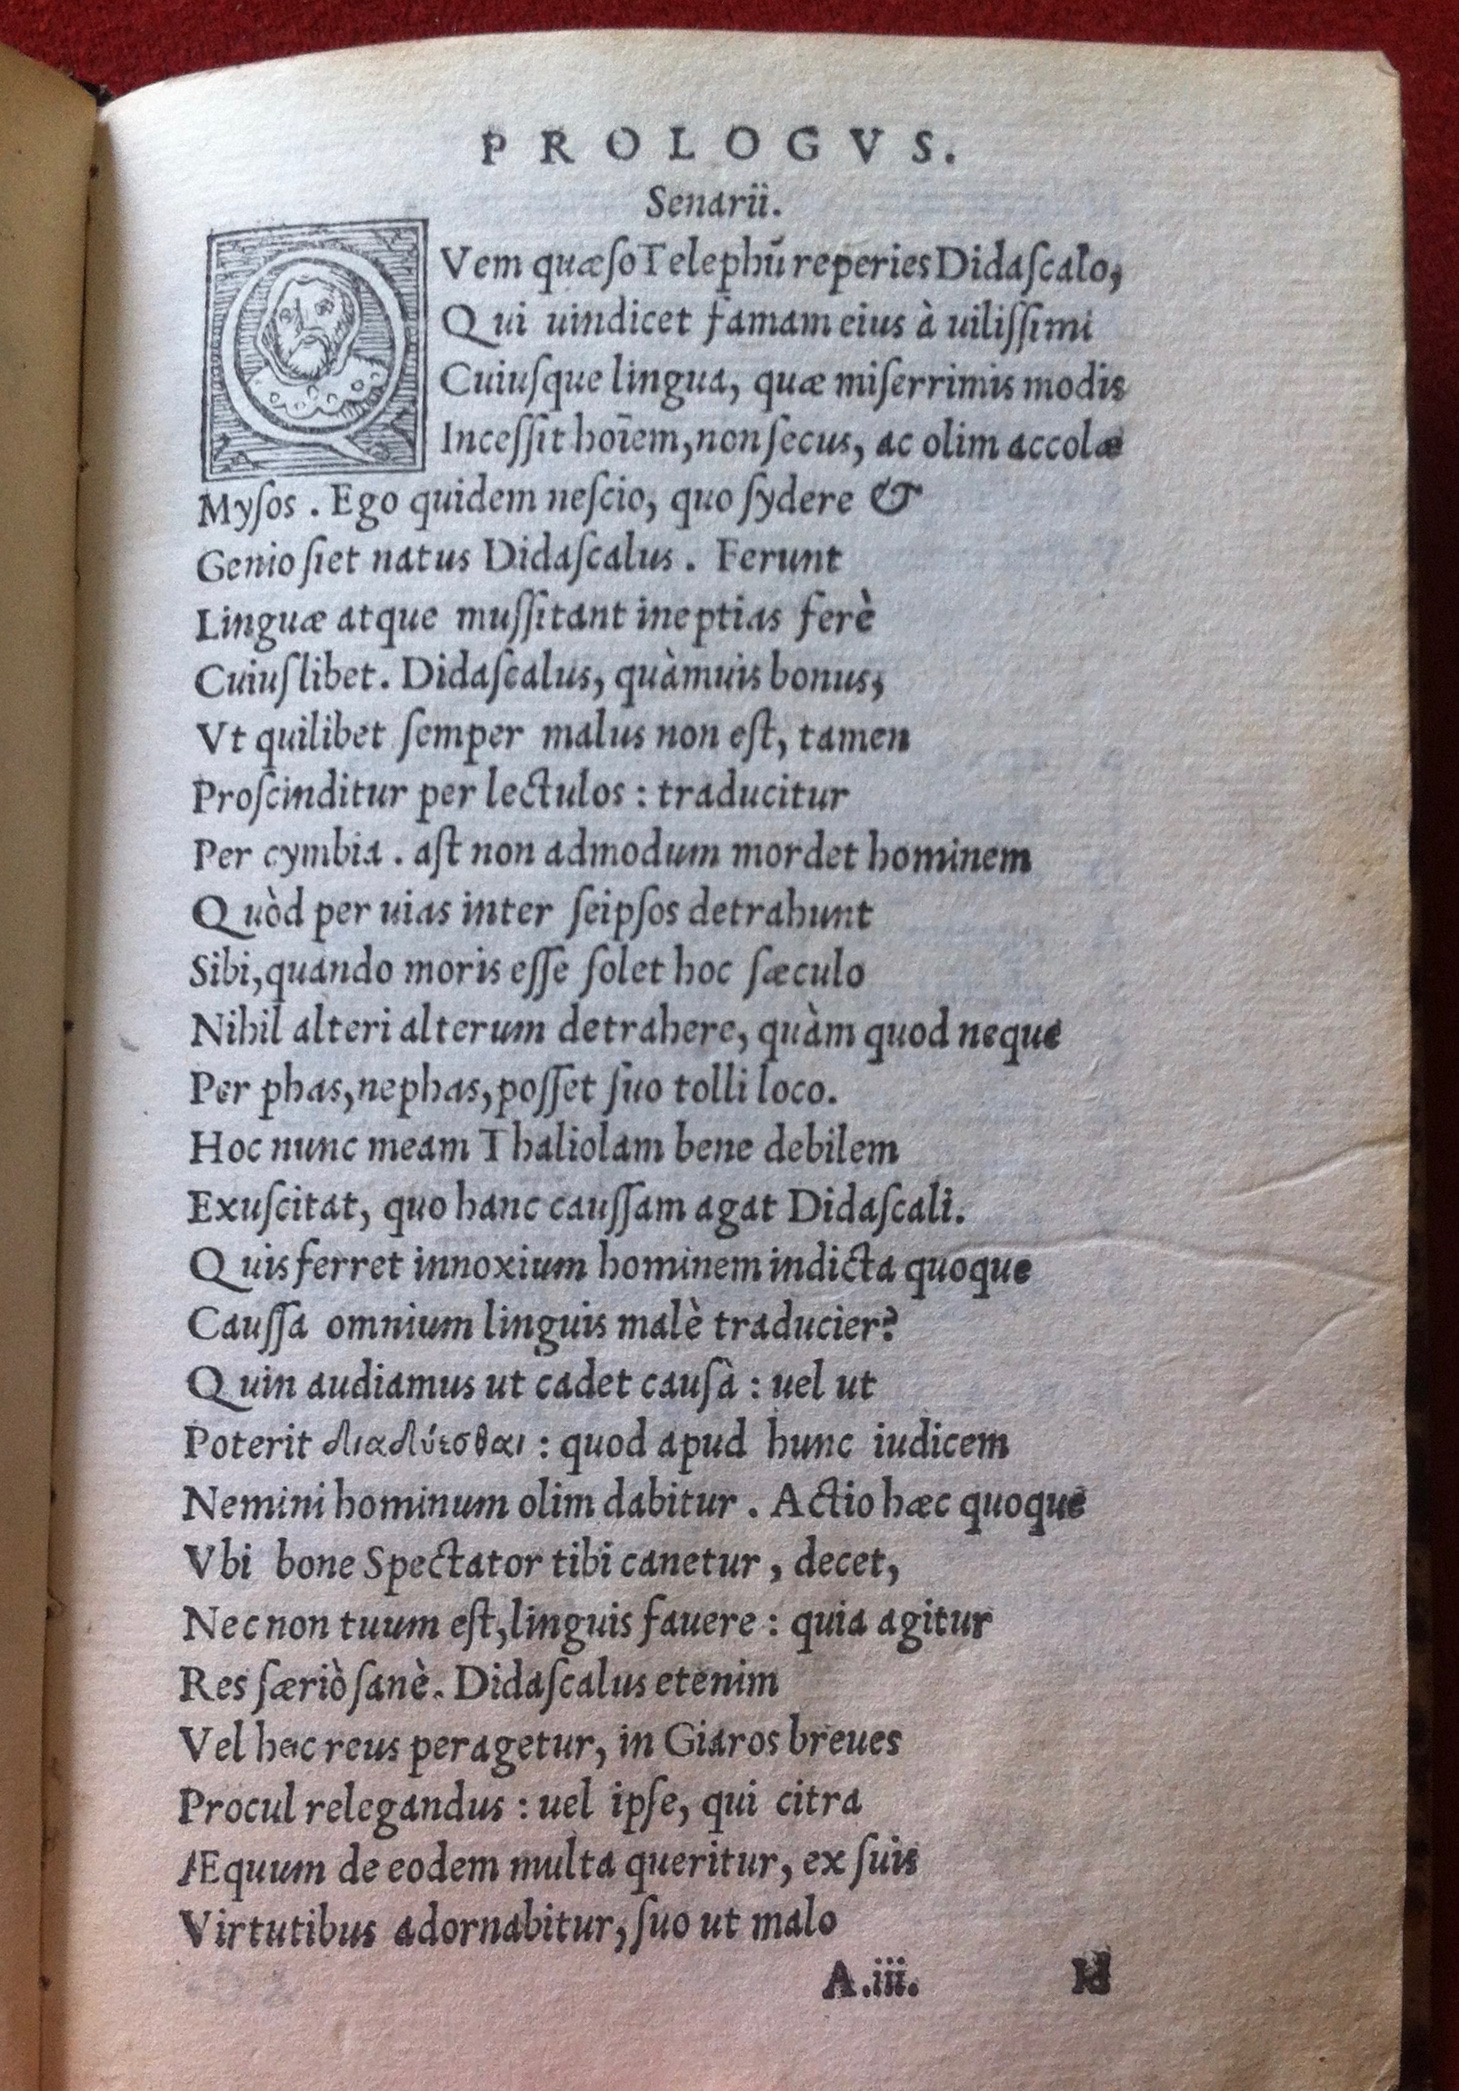 PROLOGVS.
Senarii.
QVem quæſo Telephū reperies Didaſcalo,
Qui uindicet famam eius à uiliſſimi
Cuiuſque lingua, quæ miſerrimis modis
Inceſſit hoīem, non ſecus, ac olim accolæ
Myſos. Ego quidem neſcio, quo ſydere &
Genio ſiet natus Didaſcalus. Ferunt
Linguæ atque muſſitant ineptias ferè
Cuiuſlibet. Didaſcalus, quàmuis bonus,
Vt quilibet ſemper malus non eſt, tamen
Proſcinditur per lectulos: traducitur
Per cymbia. aſt non admodum mordet hominem
Quòd per uias inter ſeipſos detrahunt
Sibi, quando moris eſſe ſolet hoc ſæculo
Nihil alteri alterum detrahere, quàm quod neque
Per phas, nephas, poſſet ſuo tolli loco.
Hoc nunc meam Thaliolam bene debilem
Exuſcitat, quo hanc cauſſam agat Didaſcali.
Quis ferret innoxium hominem indicta quoque
Cauſſa omnium linguis malè traducier?
Quin audiamus ut cadet cauſà: uel ut
Poterit διαλύεσθαι: quod apud hunc iudicem
Nemini hominum olim dabitur. Actio hæc quoque
Vbi bone Spectator tibi canetur, decet,
Nec non tuum eſt, linguis fauere: quia agitur
Res ſæriò ſanè. Didaſcalus etenim
Vel hac reus peragetur, in Giaros breues
Procul relegandus: uel ipſe, qui citra
Æquum de eodem multa queritur, ex ſuis
Virtutibus adornabitur, ſuo ut malo
A.iii. Id